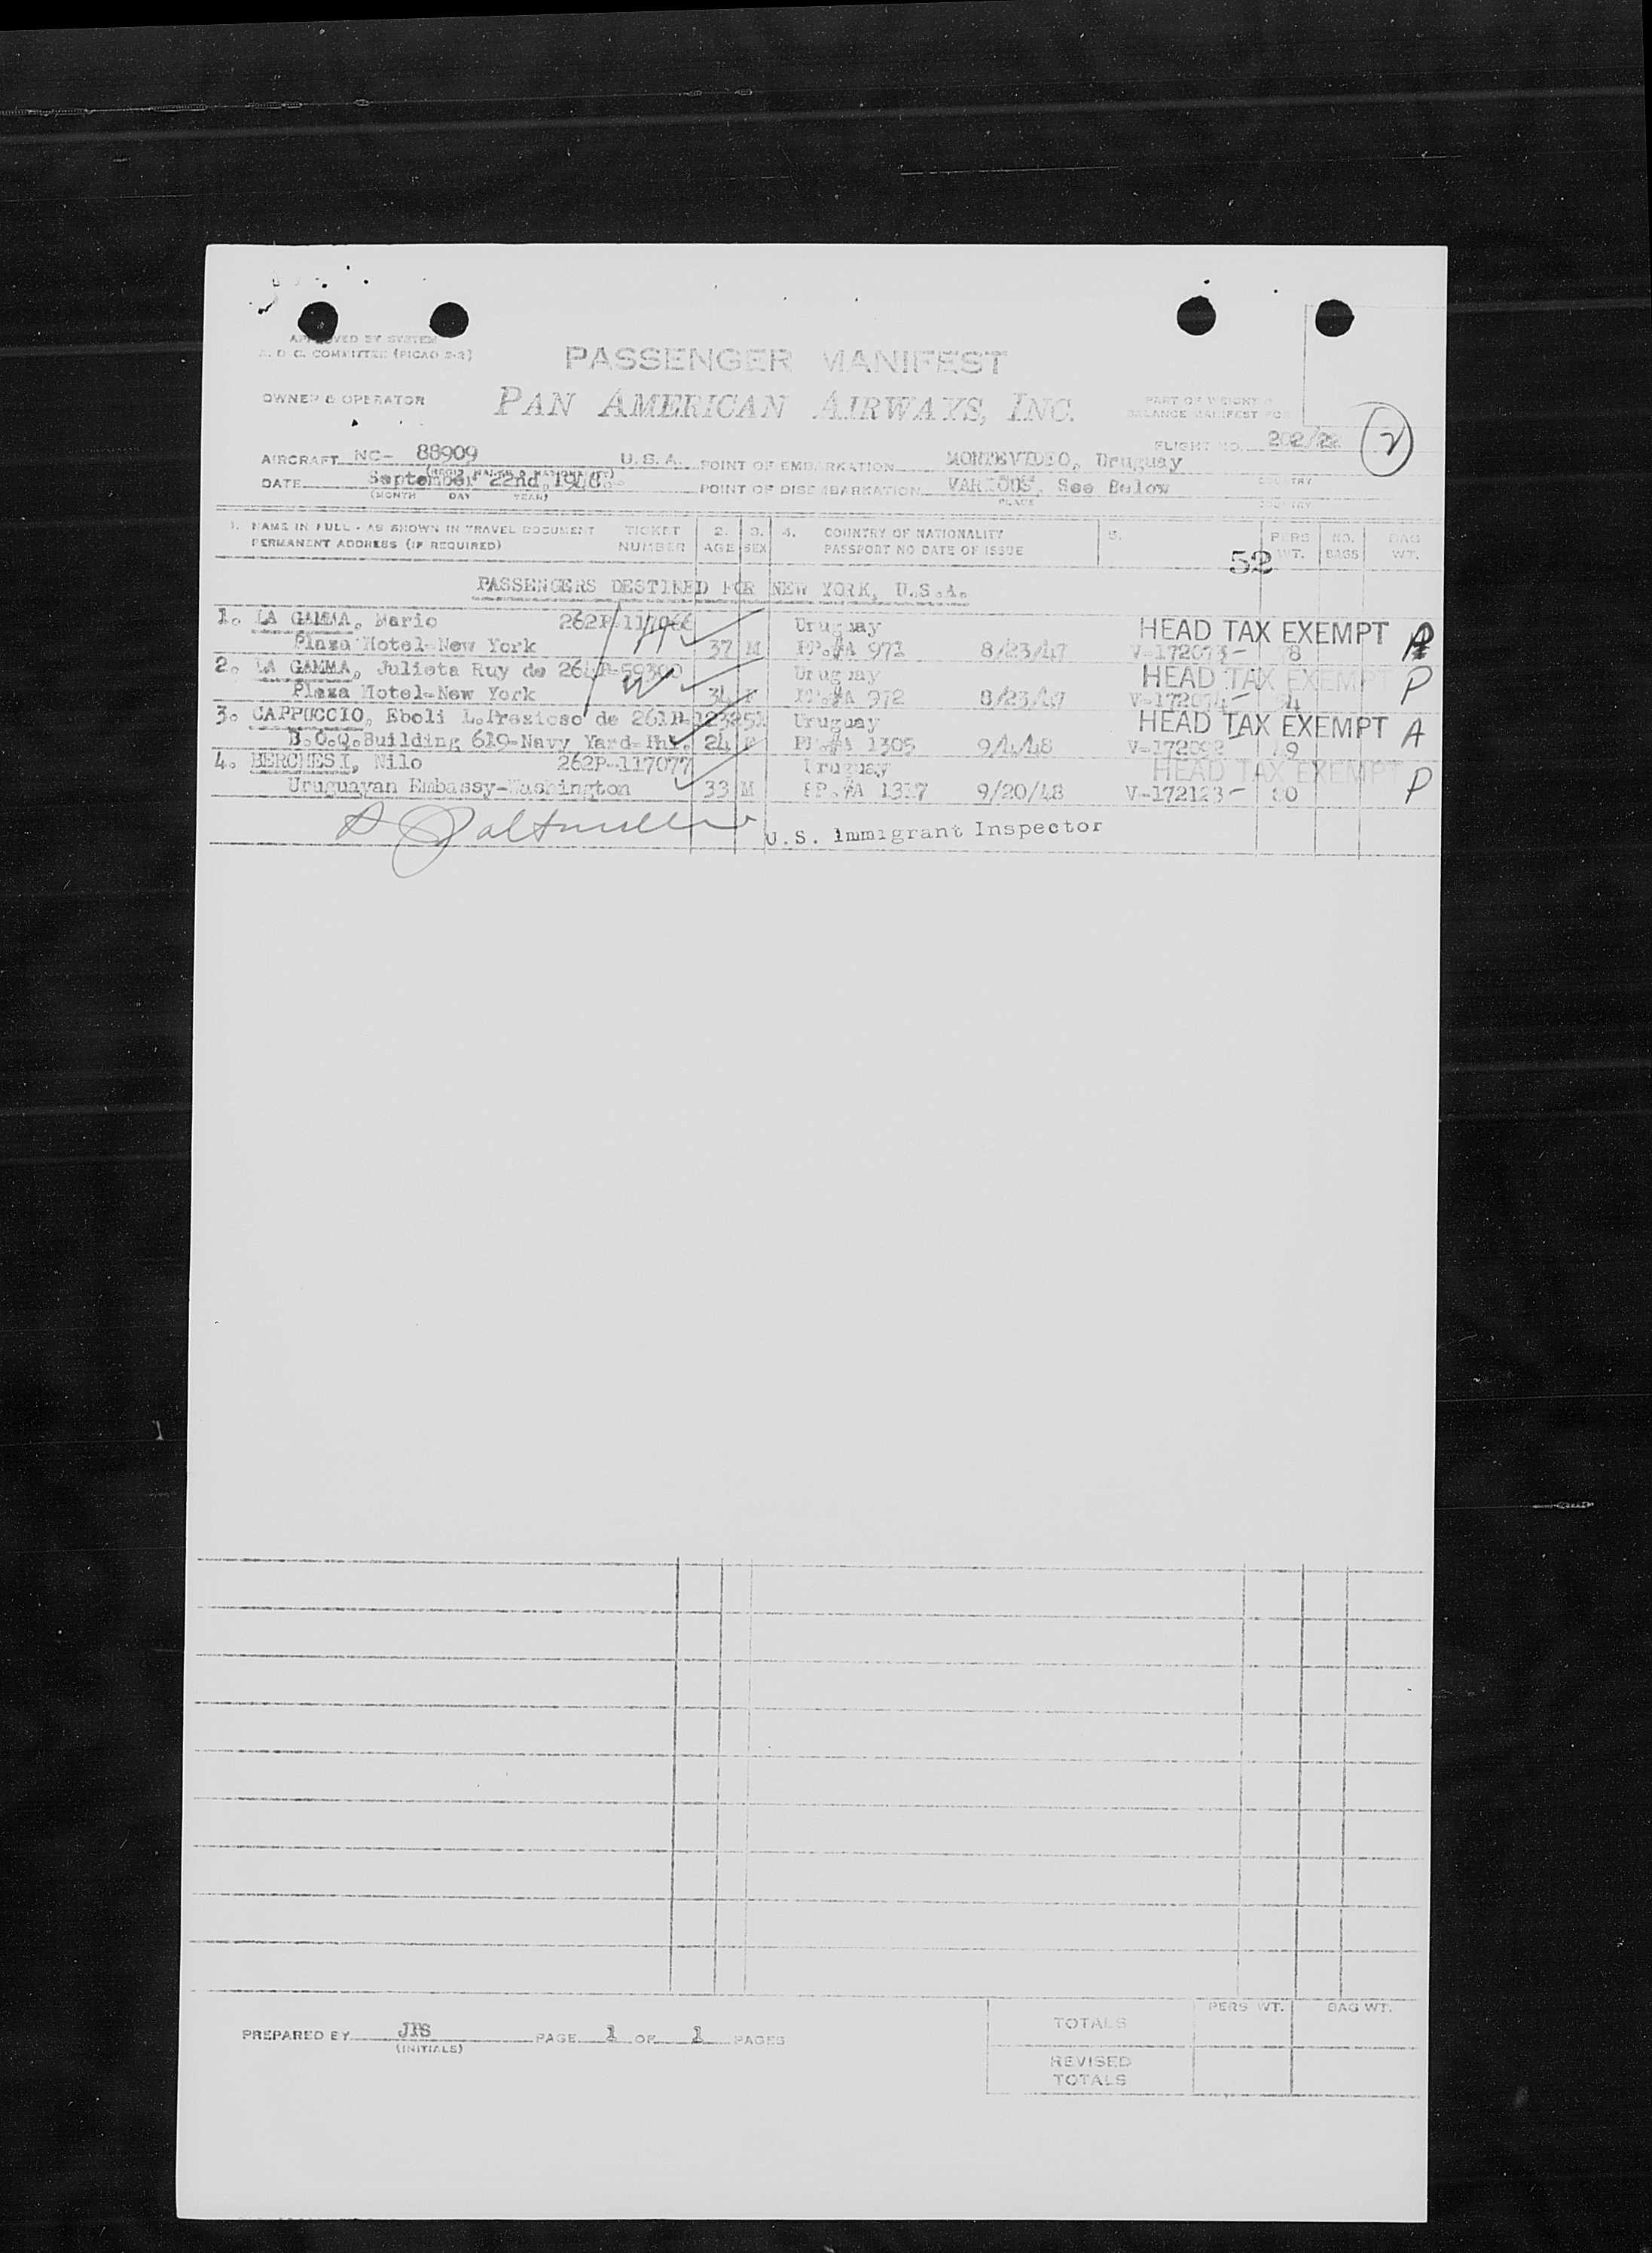 APPROVED BY SYSTEM
COMMITTEE (PICAO 2-2)
PASSENGER MANIFEST
OWNER & OPERATOR
PAN AMERICAN AIRWAYS, INC.
PART OF WEIGHT &
BALANCE MANIFEST FOR
FLIGHT NO. 202/22
2
AIRCRAFT NC- 88909 U.S.A. POINT OF EMBARKATION MONTEVIDEO, Uruguay
DATE September 22nd, 1948 POINT OF DISEMBARKATION VARIOUS, See Below
(MONTH DAY YEAR) PLACE COUNTRY
1. NAME IN FULL - AS SHOWN IN TRAVEL DOCUMENT TICKET 2. 3. 4. COUNTRY OF NATIONALITY 5. PERS NO. BAG
PERMANENT ADDRESS (IF REQUIRED) NUMBER AGE SEX PASSPORT NO DATE OF ISSUE WT. BAGS WT.
52
PASSENGERS DESTINED FOR NEW YORK, U.S.A.
1. LA GAMMA, Mario 262P-117066 Uruguay HEAD TAX EXEMPT A
Plaza Hotel-New York 37 M PP.#A 971 8/23/47 V-172073- 78
2. LA GAMMA, Julieta Ruy de 264P-59300 Uruguay HEAD TAX EXEMPT P
Plaza Hotel-New York 34 F PP.#A 972 8/23/47 V-172074-
3. CAPPUCCIO, Eboli L.Prezioso de 261P-123251 Uruguay HEAD TAX EXEMPT A
B.O.Q.Building 619-Navy Yard-Phi. 24 F PP.#A 1305 9/4/48
4. BERCHESI, Nilo 262P-117077 Uruguay HEAD TAX EXEMPT P
Uruguayan Embassy-Washington 33 M PP.#A 1317 9/20/48 V-172123- 80
U.S. Immigrant Inspector
PREPARED BY JPS PAGE 1 OF 1 PAGES
(INITIALS)
PERS WT. BAG WT.
TOTALS
REVISED
TOTALS